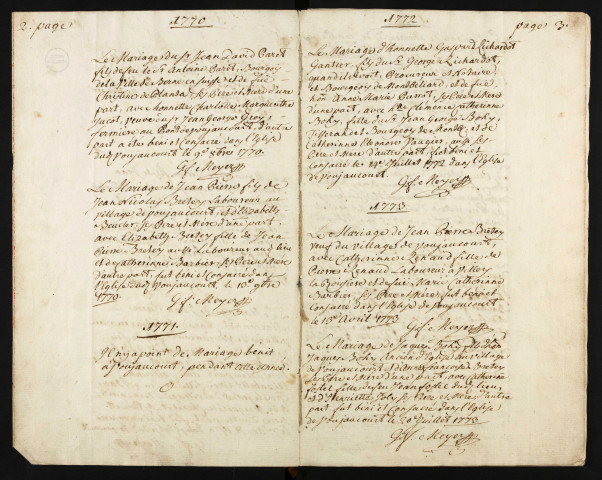 2. page
1770
Le Mariage du Sr Jean David Paret
fils de feu le Sr Antoine Paret, Bourgeois
de la Ville de Berne en Suisse et de feüe
Christine de Blansa, ses Pere et Mere d'une
part, avec honnette Charlotte Marguerithe
Jacot, veuve du Sr Jean George Gros,
fermiere au Pont de voujaucourt, d'autre
part a été beni et Consacré dans l'Eglise
dud. voujaucourt le 9e 8bre 1770.
Gf. Meyer
Le Mariage de Jean Pierre fils de
Jean Nicolas Bretey Laboureur au
village de voujaucourt, et d'Elizabeth
Boucler ses Pere et Mere d'une part.
avec Elizabeth Bretey fille de Jean
Pierre Bretey aussi Laboureur aud. lieu
et de Catherinne Barbier ses Pere et Mere
d'autre part, fut beni et Consacré dans
l'Eglise dud. voujaucourt. le 13e 9bre
1770.
Gf. Meyer
1771
Il n'y a point de Mariage benit
à voujaucourt, pendant cette année.
page 3.
1772
Le Mariage d'honnette Gaspard Lichardot
Gantier, fils du Sr George Lichardot,
quand il vivoit Procureur et Notaire,
et Bourgeois de Montbeliard et de feüe
honn. Anne Marie Parrot, ses Pere et Mere
d'une part, avec Clemence Catherinne
Bohy, fille du Sr Jean George Bohy,
Tisserand et Bourgeois de Montb. et de
Catherinne Eleonore Faugier, aussi ses
Pere et Mere d'autre part fut beni et
Consacré le 14e Juillet 1772 dans l'Eglise
de voujaucourt.
Gf. Meyer
1773
Le Mariage de Jean Pierre Bretey
veuf du village de voujaucourt,
avec Catherinne Renaud fille de
Pierre Renaud Laboureur à Villers
la Boissiere et de feüe Marie Catherinne
Barbier ses Pere et Mere, fut beni et
Consacré dans l'Eglise de voujaucourt
le 13e Avril 1773.
Gf. Meyer
Le Mariage de Jaques Bohy fils de
Jaques Bohy Ancien d'Eglise au village
de voujaucourt et d'Anne françoise Bretey
ses Pere et Mere d'une part, avec Catherine
fille de feu Jean dud. lieu,
et d'Henriette ses Pere et Mere d'autre
part fut béni et Consacré dans l'Eglise
de voujaucourt le 20e Juillet 1773.
Gf. Meyer